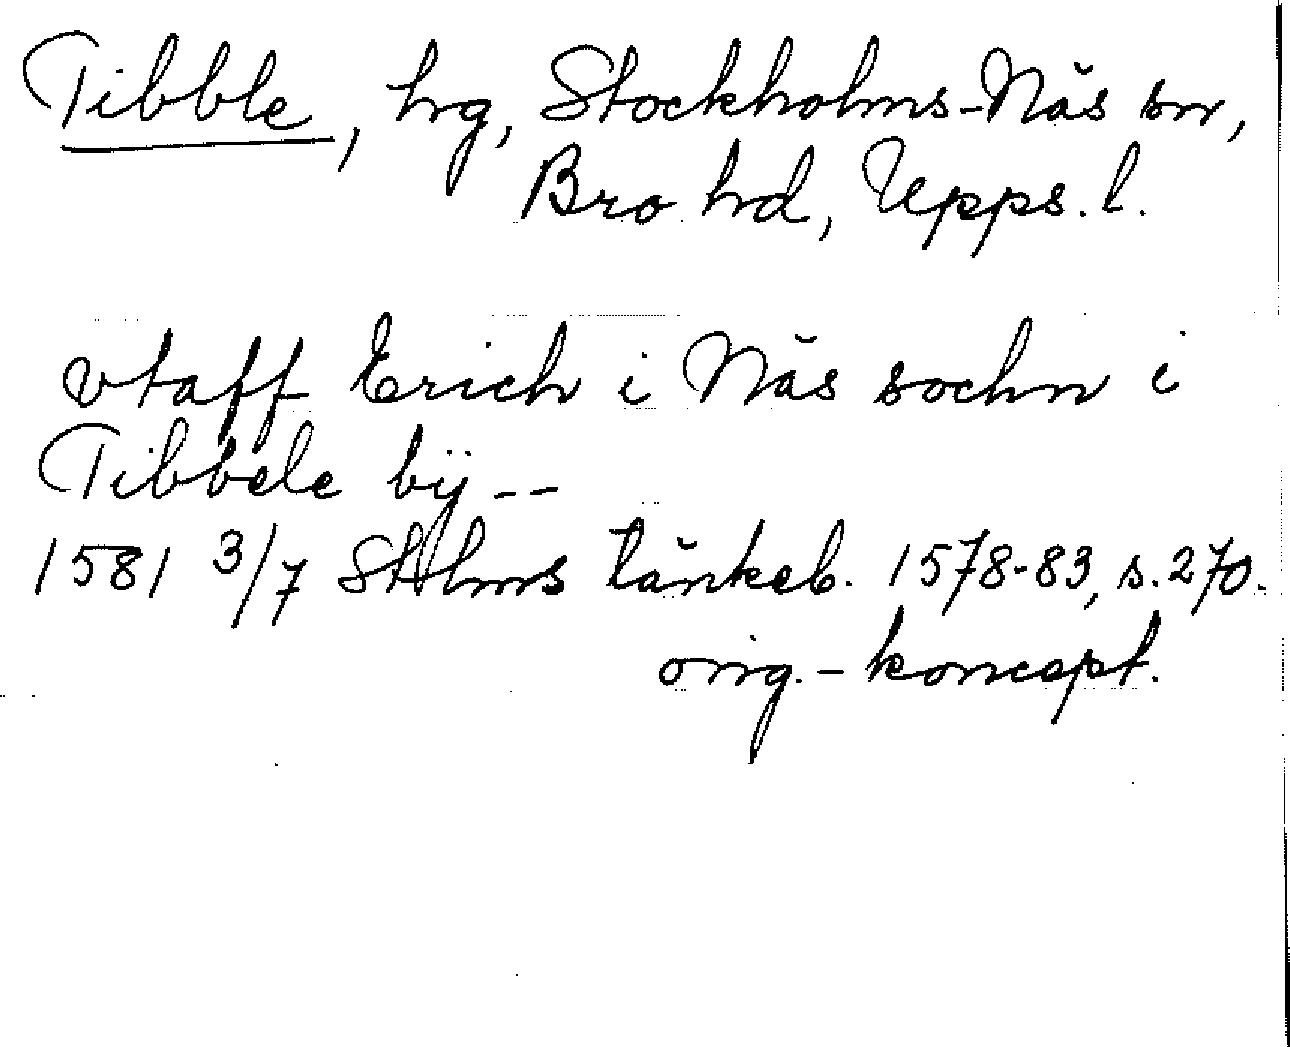 Tibble, hrg, Stockholms-Näs sn,
Bro hd, Upps. l.
vtaff Erich i Näs sochn i
Tibbele bÿ --
1581 3/7 Sthlms tänkeb. 1578-83, s. 270.
orig.-koncept.